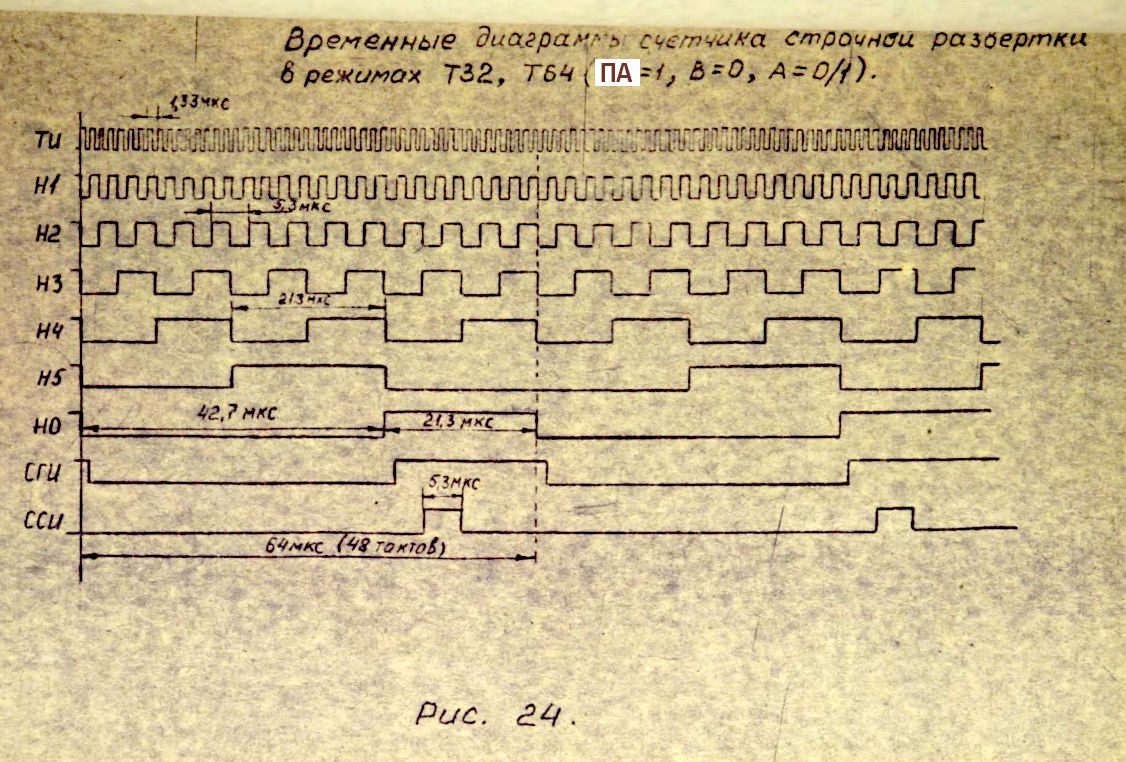 Временные диаграммы счетчика строчной развертки
в режимах Т32, Т64 (ПА=1, В=0, А=0/1).
1,33мкс
ТИ
Н1
5,3мкс
Н2
Н3
21,3мкс
Н4
Н5
42,7 мкс
21,3 мкс
Н0
СГИ
5,3мкс
ССИ
64мкс (48 тактов)
Рис. 24.